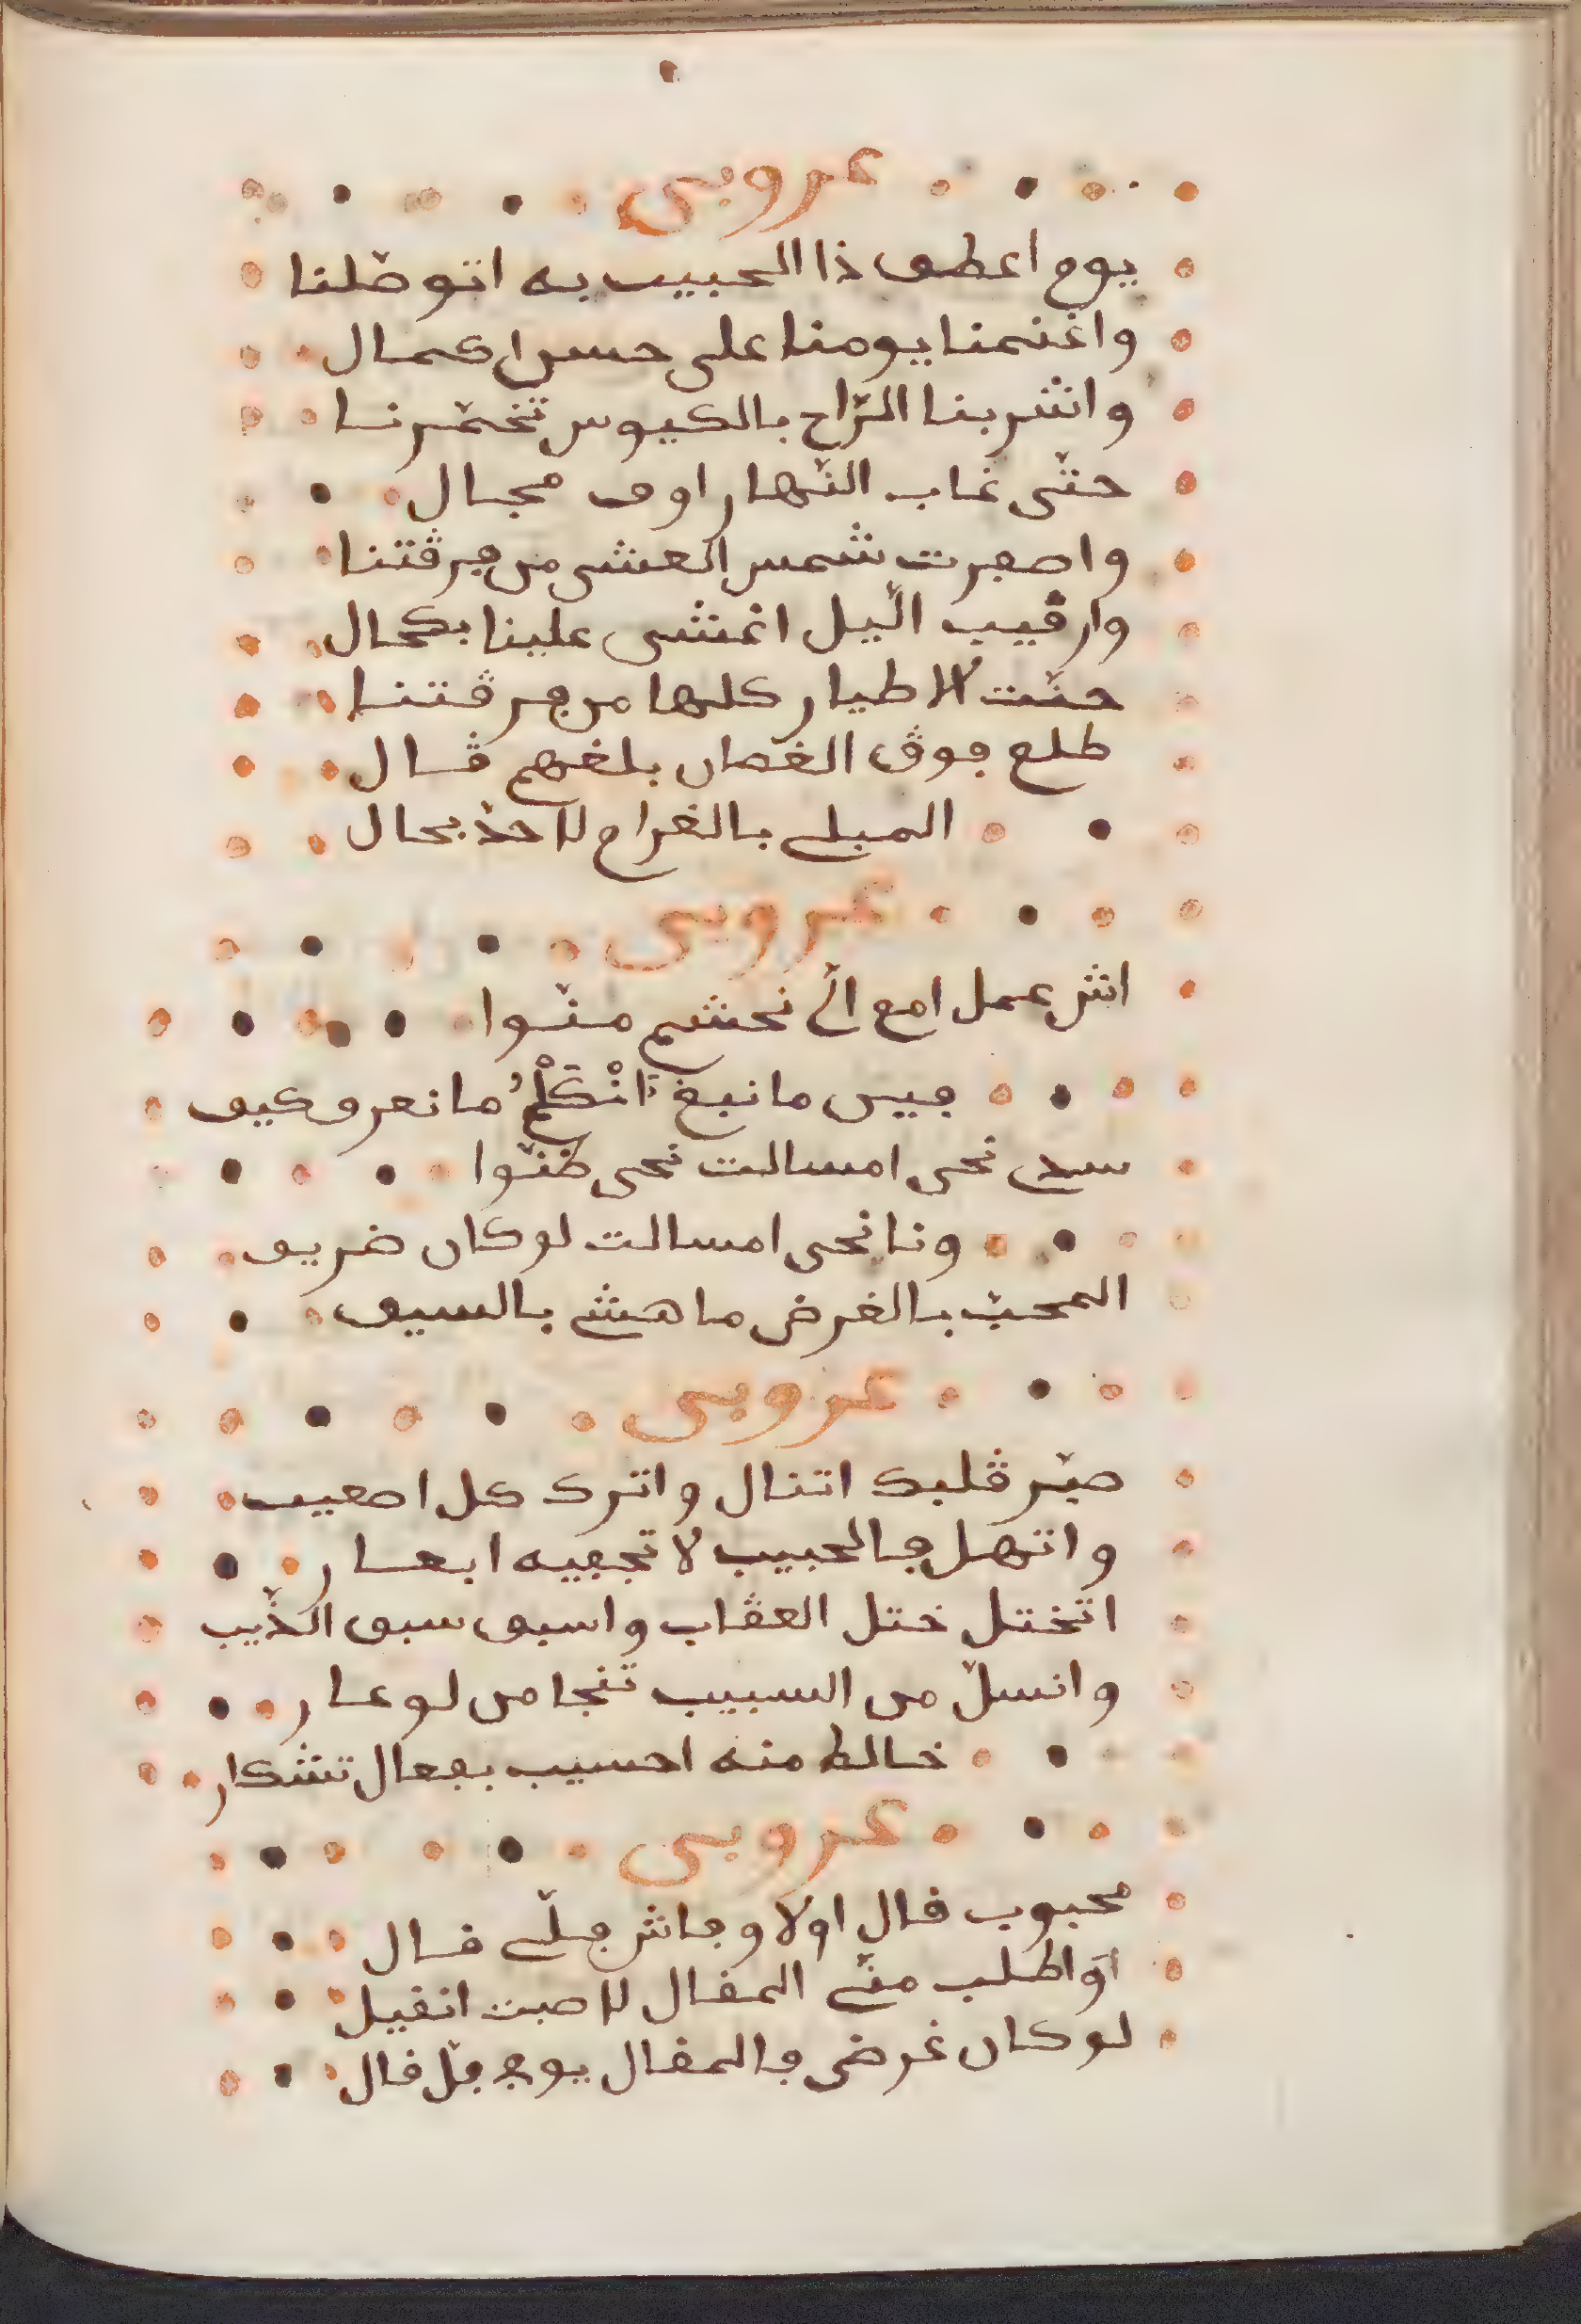 عروبي
يوم اعطف ذا الحبيب به اتوصّلنا
واغنمنا يومنا على حسن اكمال
واشربنا الرّاح بالكيوس تخمّرنا
حتّى غاب النّهار اوف مجال
واصفرت شمس العشي من فرقتنا
وارقيب الّيل اغشى علينا بكحال
حنّت الاطيار كلها من فرقتنا
طلع فوق الغصان بلغهم قال
المبلي بالغرام لا حذ بحال
عروبي
اش عمل امع الّي نحشم منّوا
فيس ما نبغ انْكَلْمُ ما نعرو كيف
سيدي نحى امسالت نحى ظنّوا
ونا نحى امسالت لو كان ضريف
المحبّ بالغرض ما هشي بالسيف
عروبي
صبّر قلبك اتنال واترك كل اصعيب
واتهل فالحبيب لا تجيبه ابعار
اتختل ختل العقاب واسبق سبق الذّيب
وانسلّ من السبيب تنجا من لوعار
خالط منه احسيب بفعال تشكار
عروبي
محبوب قال اولا وفاش فلّي قال
اوَاطلب منّي المقال لا صبت انقيل
لو كان غرضي فالمقال يوم فلّ قال